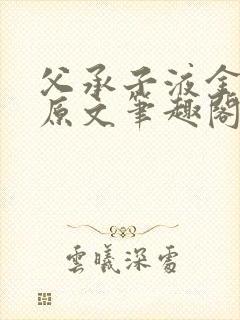 父承子液全
原文笔趣阁
雲曦深處